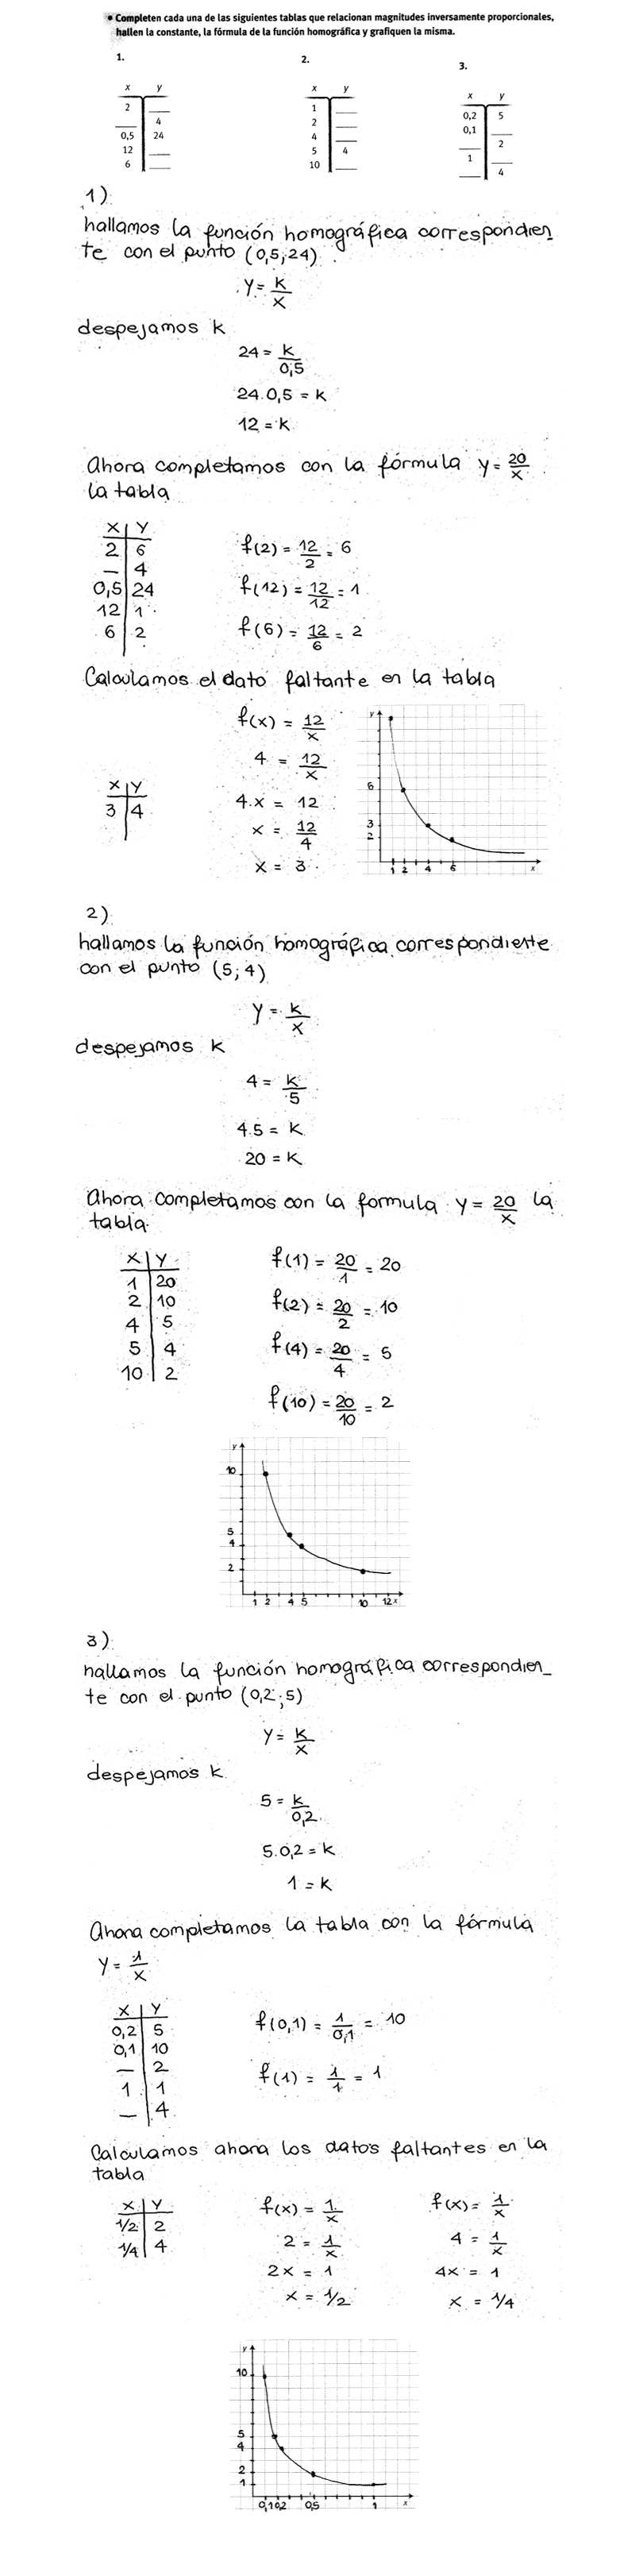 • Completen cada una de las siguientes tablas que relacionan magnitudes inversamente proporcionales,
hallen la constante, la fórmula de la función homográfica y grafiquen la misma.
1.
x y
2 ___
___ 4
0,5 24
12 ___
6 ___
2.
x y
1 ___
2 ___
4 ___
5 4
10 ___
3.
x y
0,2 5
0,1 ___
___ 2
1 ___
___ 4
1)
hallamos la función homográfica correspondien_
te con el punto (0,5; 24)
y = k/x
despejamos k
24 = k/0,5
24.0,5 = k
12 = k
Ahora completamos con la fórmula y = 20/x
la tabla
x y
2 6
— 4
0,5 24
12 1
6 2
f(2) = 12/2 = 6
f(12) = 12/12 = 1
f(6) = 12/6 = 2
Calculamos el dato faltante en la tabla
x y
3 4
f(x) = 12/x
4 = 12/x
4.x = 12
x = 12/4
x = 3
y
6
3
2
1 2 4 6 x
2)
hallamos la función homográfica correspondiente
con el punto (5; 4)
y = k/x
despejamos k
4 = k/5
4.5 = k
20 = k
Ahora completamos con la formula y = 20/x la
tabla
x y
1 20
2 10
4 5
5 4
10 2
f(1) = 20/1 = 20
f(2) = 20/2 = 10
f(4) = 20/4 = 5
f(10) = 20/10 = 2
y
10
5
4
2
1 2 4 5 10 12 x
3)
hallamos la función homográfica correspondien_
te con el punto (0,2; 5)
y = k/x
despejamos k
5 = k/0,2
5.0,2 = k
1 = k
Ahora completamos la tabla con la fórmula
y = 1/x
x y
0,2 5
0,1 10
— 2
1 1
— 4
f(0,1) = 1/0,1 = 10
f(1) = 1/1 = 1
Calculamos ahora los datos faltantes en la
tabla
x y
1/2 2
1/4 4
f(x) = 1/x
2 = 1/x
2x = 1
x = 1/2
f(x) = 1/x
4 = 1/x
4x = 1
x = 1/4
y
10
5
4
2
1
0,1 0,2 0,5 1 x